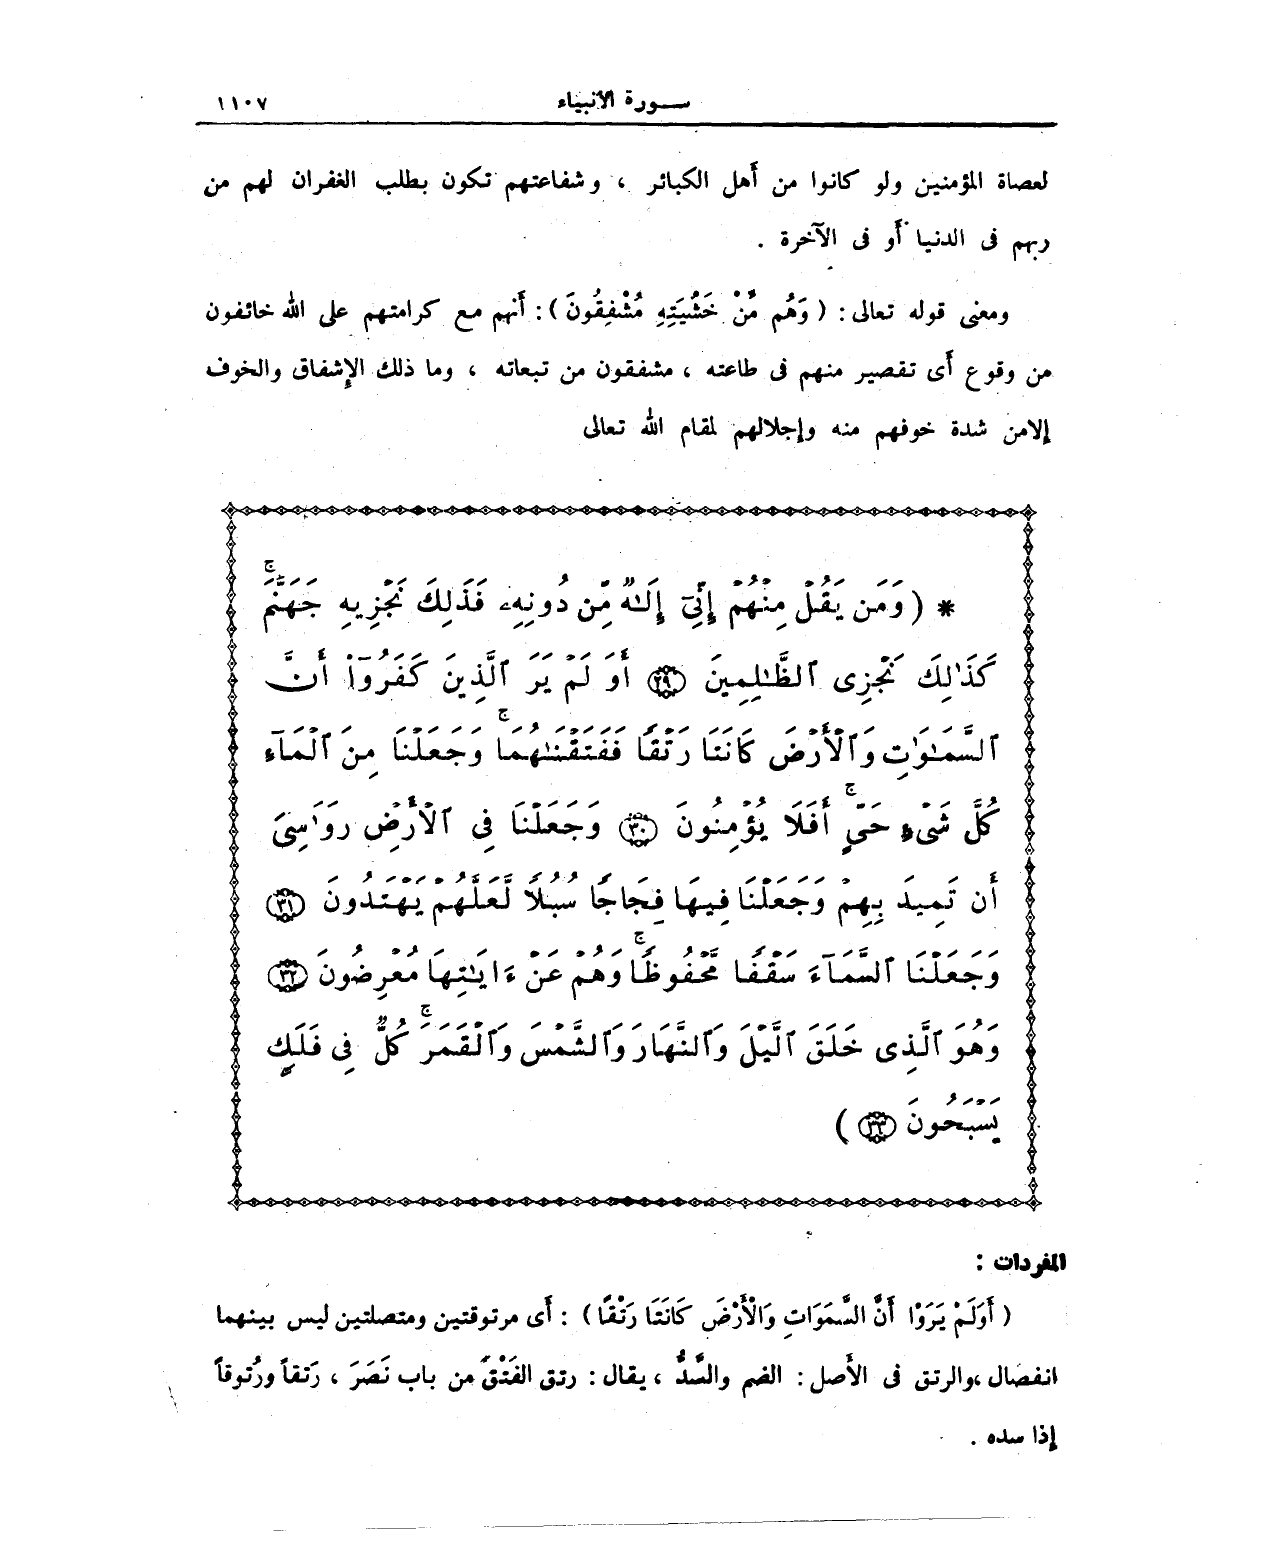 ســورة الأنبياء ١١٠٧
لعصاة المؤمنين ولو كانوا من أهل الكبائر ، وشفاعتهم تكون بطلب الغفران لهم من
ربهم فى الدنيا أو فى الآخرة .
ومعنى قوله تعالى : ( وَهُم مِّنْ خَشْيَتِهِ مُشْفِقُونَ ) : أنهم مع كرامتهم على الله خائفون
من وقوع أى تقصير منهم فى طاعته ، مشفقون من تبعاته ، وما ذلك الإشفاق والخوف
إلامن شدة خوفهم منه وإجلالهم لمقام الله تعالى
* ( وَمَن يَقُلْ مِنْهُمْ إِنِّىٓ إِلَٰهٌ مِّن دُونِهِۦ فَذَٰلِكَ نَجْزِيهِ جَهَنَّمَ ۚ
كَذَٰلِكَ نَجْزِى ٱلظَّٰلِمِينَ ﴿٢٩﴾ أَوَلَمْ يَرَ ٱلَّذِينَ كَفَرُوٓا۟ أَنَّ
ٱلسَّمَٰوَٰتِ وَٱلْأَرْضَ كَانَتَا رَتْقًا فَفَتَقْنَٰهُمَا ۖ وَجَعَلْنَا مِنَ ٱلْمَآءِ
كُلَّ شَىْءٍ حَىٍّ ۖ أَفَلَا يُؤْمِنُونَ ﴿٣٠﴾ وَجَعَلْنَا فِى ٱلْأَرْضِ رَوَٰسِىَ
أَن تَمِيدَ بِهِمْ وَجَعَلْنَا فِيهَا فِجَاجًا سُبُلًا لَّعَلَّهُمْ يَهْتَدُونَ ﴿٣١﴾
وَجَعَلْنَا ٱلسَّمَآءَ سَقْفًا مَّحْفُوظًا ۖ وَهُمْ عَنْ ءَايَٰتِهَا مُعْرِضُونَ ﴿٣٢﴾
وَهُوَ ٱلَّذِى خَلَقَ ٱلَّيْلَ وَٱلنَّهَارَ وَٱلشَّمْسَ وَٱلْقَمَرَ ۖ كُلٌّ فِى فَلَكٍ
يَسْبَحُونَ ﴿٣٣﴾ )
المفردات :
( أَوَلَمْ يَرَوْا أَنَّ السَّمَوَاتِ وَالْأَرْضَ كَانَتَا رَتْقًا ) : أى مرتوقتين ومتصلتين ليس بينهما
انفصال ،والرتق فى الأصل : الضم والسَّدُّ ، يقال : رتق الفَتْقَ من باب نَصَرَ ، رَتقاً ورُتوقاً
إذا سده .